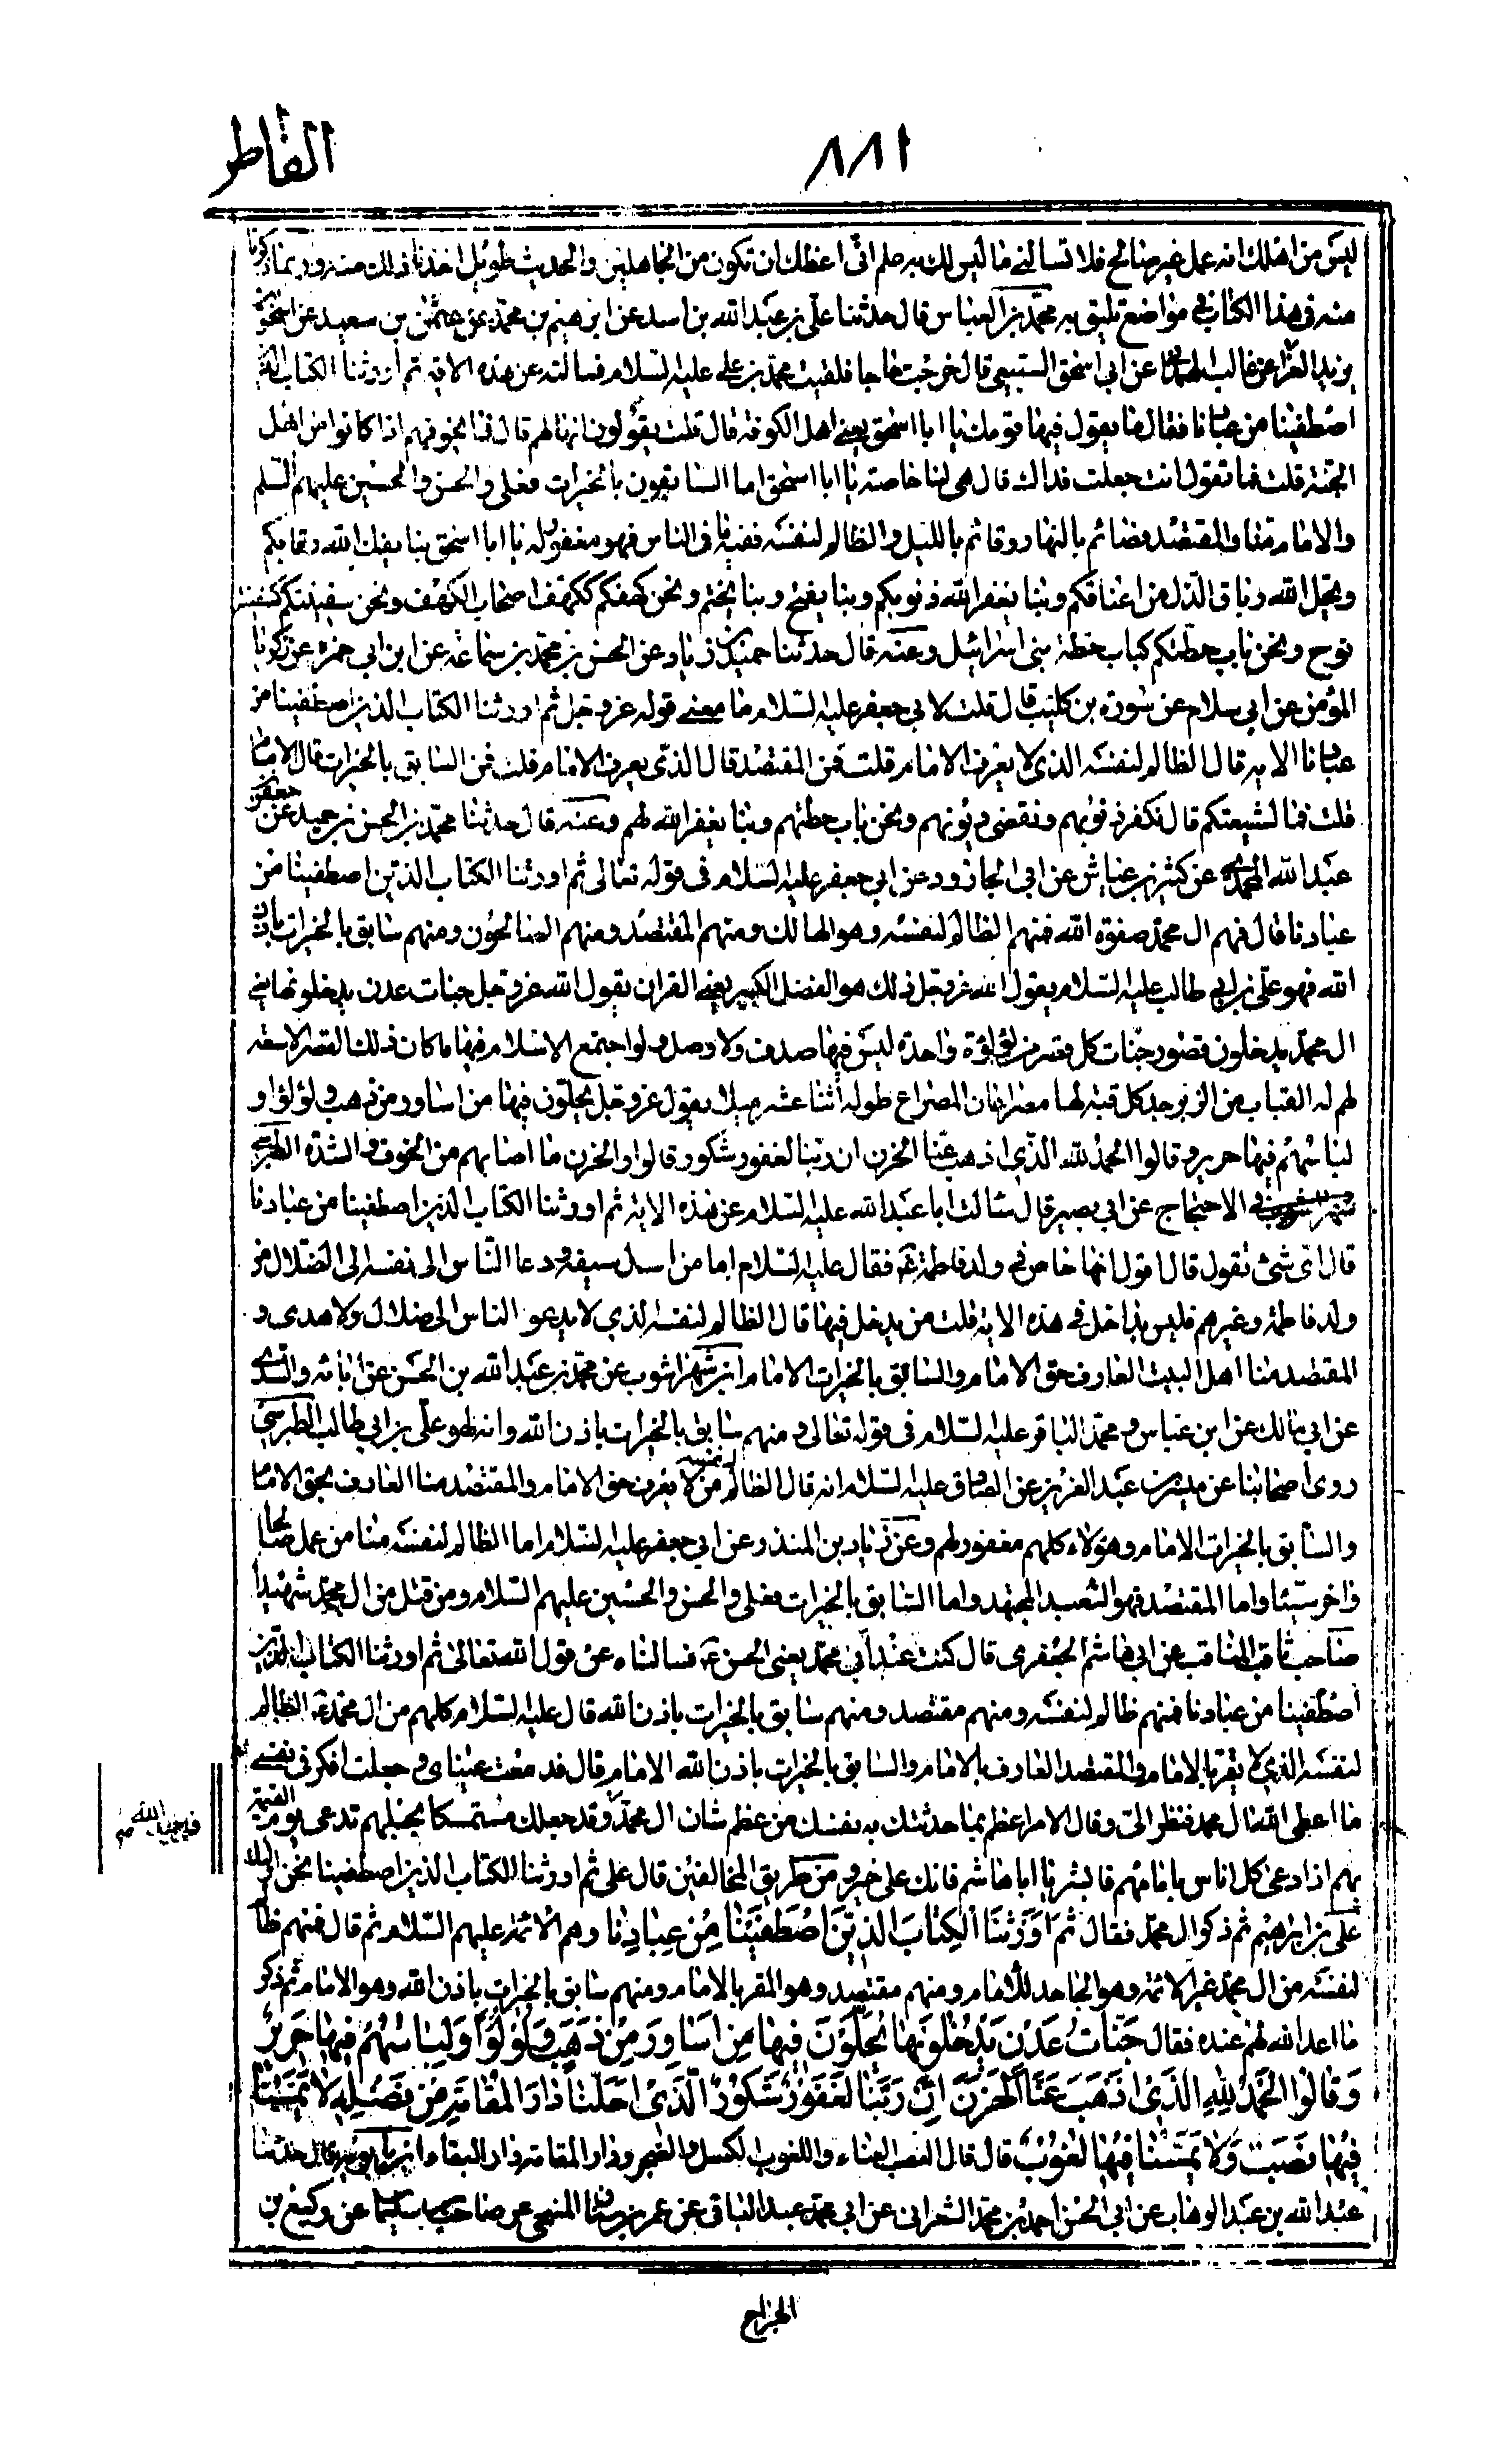 ٨٨١
الفاطر
ليس من اهلك انه عمل غير صالح فلا تسالني ما ليس لك به علم اني اعظك ان تكون من الجاهلين والحديث طويل اخذنا ذلك منه وربما ذكرنا
منه في هذا الكتاب في مواضع تليق به محمد بن العباس قال حدثنا علي بن عبد الله بن اسد عن ابرهيم بن محمد عن عثمن بن سعيد عن اسحق بن
يزيد الفرا عن غالب الهمداني عن ابي اسحق السبيعي قال خرجت حاجا فلقيت محمد بن علي عليه السلام فسالته عن هذه الاية ثم اورثنا الكتاب الذين
اصطفينا من عبادنا فقال ما يقول فيها قومك يا ابا اسحق يعني اهل الكوفة قال قلت يقولون انها لهم قال فما يخوفهم اذا كانوا من اهل
الجنة قلت فما تقول انت جعلت فداك قال هي لنا خاصة يا ابا اسحق اما السابقون بالخيرات فعلي والحسن والحسين عليهم السلم
والامام منا والمقتصد فصائم بالنهار وقائم بالليل والظالم لنفسه ففيه ما في الناس فهو مغفور له يا ابا اسحق بنا يفك الله رقابكم
ويحل الله رباق الذل من اعناقكم وبنا يغفر الله ذنوبكم وبنا يفتح وبنا يختم ونحن كهفكم ككهف اصحاب الكهف ونحن سفينتكم كسفينة
نوح ونحن باب حطتكم كباب حطة بني اسرائيل وعنه قال حدثنا حميد بن زياد عن الحسن بن محمد بن سماعة عن ابن ابي حمزه عن زكريا
المؤمن عن ابي سلام عن سورة بن كليب قال قلت لابي جعفر عليه السلام ما معنى قوله عز وجل ثم اورثنا الكتاب الذين اصطفينا من
عبادنا الاية قال الظالم لنفسه الذي لا يعرف الامام قلت فمن المقتصد قال الذي يعرف الامام قلت فمن السابق بالخيرات قال الامام
قلت فما لشيعتكم قال تكفر ذنوبهم ونقضي ديونهم ونحن باب حطتهم وبنا يغفر الله لهم وعنه قال حدثنا محمد بن الحسن بن حميد عن جعفر بن
عبد الله المحمدي عن كثير بن عياش عن ابي الجارود عن ابي جعفر عليه السلام في قوله تعالى ثم اورثنا الكتاب الذين اصطفينا من
عبادنا قال فهم ال محمد صفوة الله فمنهم الظالم لنفسه وهو الهالك ومنهم المقتصد ومنهم الصالحون ومنهم سابق بالخيرات باذن
الله فهو علي بن ابي طالب عليه السلام يقول الله عز وجل ذلك هو الفضل الكبير يعني القران يقول الله عز وجل جنات عدن يدخلونها يعني
ال محمد يدخلون قصور جنات كل قصر من لؤلؤة واحدة ليس فيها صدف ولا وصل ولو اجتمع الاسلام فيها ما كان ذلك القصر الا سعة
لهم له القباب من الزبرجد كل قبة لها مصراعان المصراع طوله اثنا عشر ميلا يقول عز وجل يحلون فيها من اساور من ذهب ولؤلؤا و
لباسهم فيها حرير وقالوا الحمد لله الذي اذهب عنا الحزن ان ربنا لغفور شكور قالوا والحزن ما اصابهم من الخوف والشدة الطبرسي
في الاحتجاج عن ابي بصير قال سالت ابا عبد الله عليه السلام عن هذه الاية ثم اورثنا الكتاب الذين اصطفينا من عبادنا
قال اي شئ تقول قال اقول انها خاص في ولد فاطمة ع فقال عليه السلام اما من اسل سيفه ودعا الناس الى نفسه الى الضلال من
ولد فاطمة وغيرهم فليس بداخل في هذه الاية قلت من يدخل فيها قال الظالم لنفسه الذي لا يدعو الناس الى ضلال ولا هدى و
المقتصد منا اهل البيت العارف حق الامام والسابق بالخيرات الامام ابن شهراشوب عن محمد بن عبد الله بن الحسن عن ابائه والسدي
عن ابي مالك عن ابن عباس ومحمد الباقر عليه السلام في قوله تعالى ومنهم سابق بالخيرات باذن الله وانه لهو علي بن ابي طالب الطبرسي
روى اصحابنا عن ميسر بن عبد العزيز عن الصادق عليه السلام انه قال الظالم لنفسه من لا يعرف حق الامام والمقتصد منا العارف بحق الامام
والسابق بالخيرات الامام وهؤلاء كلهم مغفور لهم وعن زياد بن المنذر عن ابي جعفر عليه السلام اما الظالم لنفسه منا من عمل صالحا
واخر سيئا واما المقتصد فهو المتعبد المجتهد واما السابق بالخيرات فعلي والحسن والحسين عليهم السلام ومن قتل من ال محمد شهيدا
صاحب ثاقب المناقب عن ابي هاشم الجعفري قال كنت عند ابي محمد يعني الحسن ع فسالناه عن قول الله تعالى ثم اورثنا الكتاب الذين
اصطفينا من عبادنا فمنهم ظالم لنفسه ومنهم مقتصد ومنهم سابق بالخيرات باذن الله قال عليه السلام كلهم من ال محمد ع الظالم
لنفسه الذي لا يقر بالامام والمقتصد العارف بالامام والسابق بالخيرات باذن الله الامام قال فدمعت عيناي وجعلت افكر في نفسي
ما اعطى الله ال محمد فنظر الي وقال الامر اعظم مما حدثتك به نفسك من عظم شان ال محمد وقد جعلك مستمسكا بحبلهم تدعى يوم القيمة
بهم اذا دعي كل اناس بامامهم فابشر يا ابا هاشم فانك على خير ومن طريق المخالفين قال علي ثم اورثنا الكتاب الذين اصطفينا نحن اولئك
علي بن ابراهيم ثم ذكر ال محمد فقال ثُمَّ اَوْرَثْنَا الْكِتَابَ الَّذينَ اصْطَفَيْنَا مِنْ عِبَادِنَا وهم الائمة عليهم السلام ثم قال فمنهم ظالم
لنفسه من ال محمد غير الائمة وهو الجاحد للامام ومنهم مقتصد وهو المقر بالامام ومنهم سابق بالخيرات باذن الله وهو الامام ثم ذكر
ما اعد الله لهم عنده فقال جَنَّاتُ عَدْنٍ يَدْخُلُونَهَا يُحَلَّوْنَ فِيهَا مِنْ اَسَاوِرَ مِنْ ذَهَبٍ وَلُؤْلُؤًا وَلِبَاسُهُمْ فِيهَا حَرِيرٌ
وَقَالُوا الْحَمْدُ لِلّهِ الَّذي اَذْهَبَ عَنَّا الْحَزَنَ اِنَّ رَبَّنَا لَغَفُورٌ شَكُورٌ الَّذي اَحَلَّنَا دَارَ الْمُقَامَةِ مِنْ فَضْلِهِ لَا يَمَسُّنَا
فِيهَا نَصَبٌ وَلَا يَمَسُّنَا فِيهَا لُغُوبٌ قال قال النصب العناء واللغوب الكسل والضجر ودار المقامة دار البقاء ابن بابويه قال حدثنا
عبد الله بن عبد الوهاب عن ابي الحسن احمد بن محمد الشعراني عن ابي محمد عبد الباقي عن عمر بن سنان المنبجي عن حاجب بن سليمان عن وكيع بن
الجراح